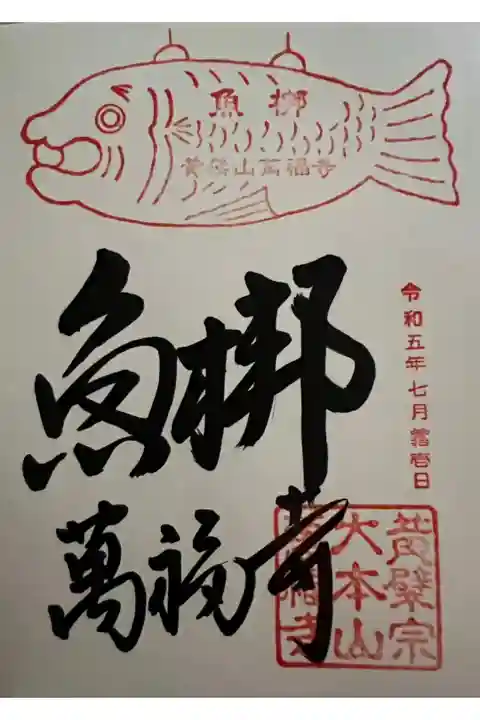 魚梆
黄檗山萬福寺
令和五年七月壱日
魚梆
萬福寺
黄檗宗
大本山
萬福寺